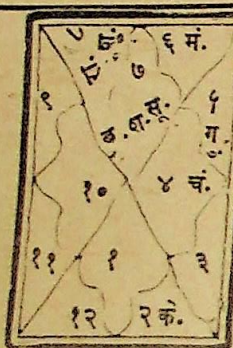 ८ रा. ६ मं.
७
९ ५
बु. शु. सू. गु.
१० ४ चं.
११ १ ३
१२ २ के.